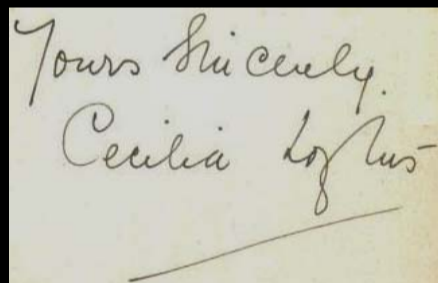 Yours Sincerely.
Cecilia Loftus